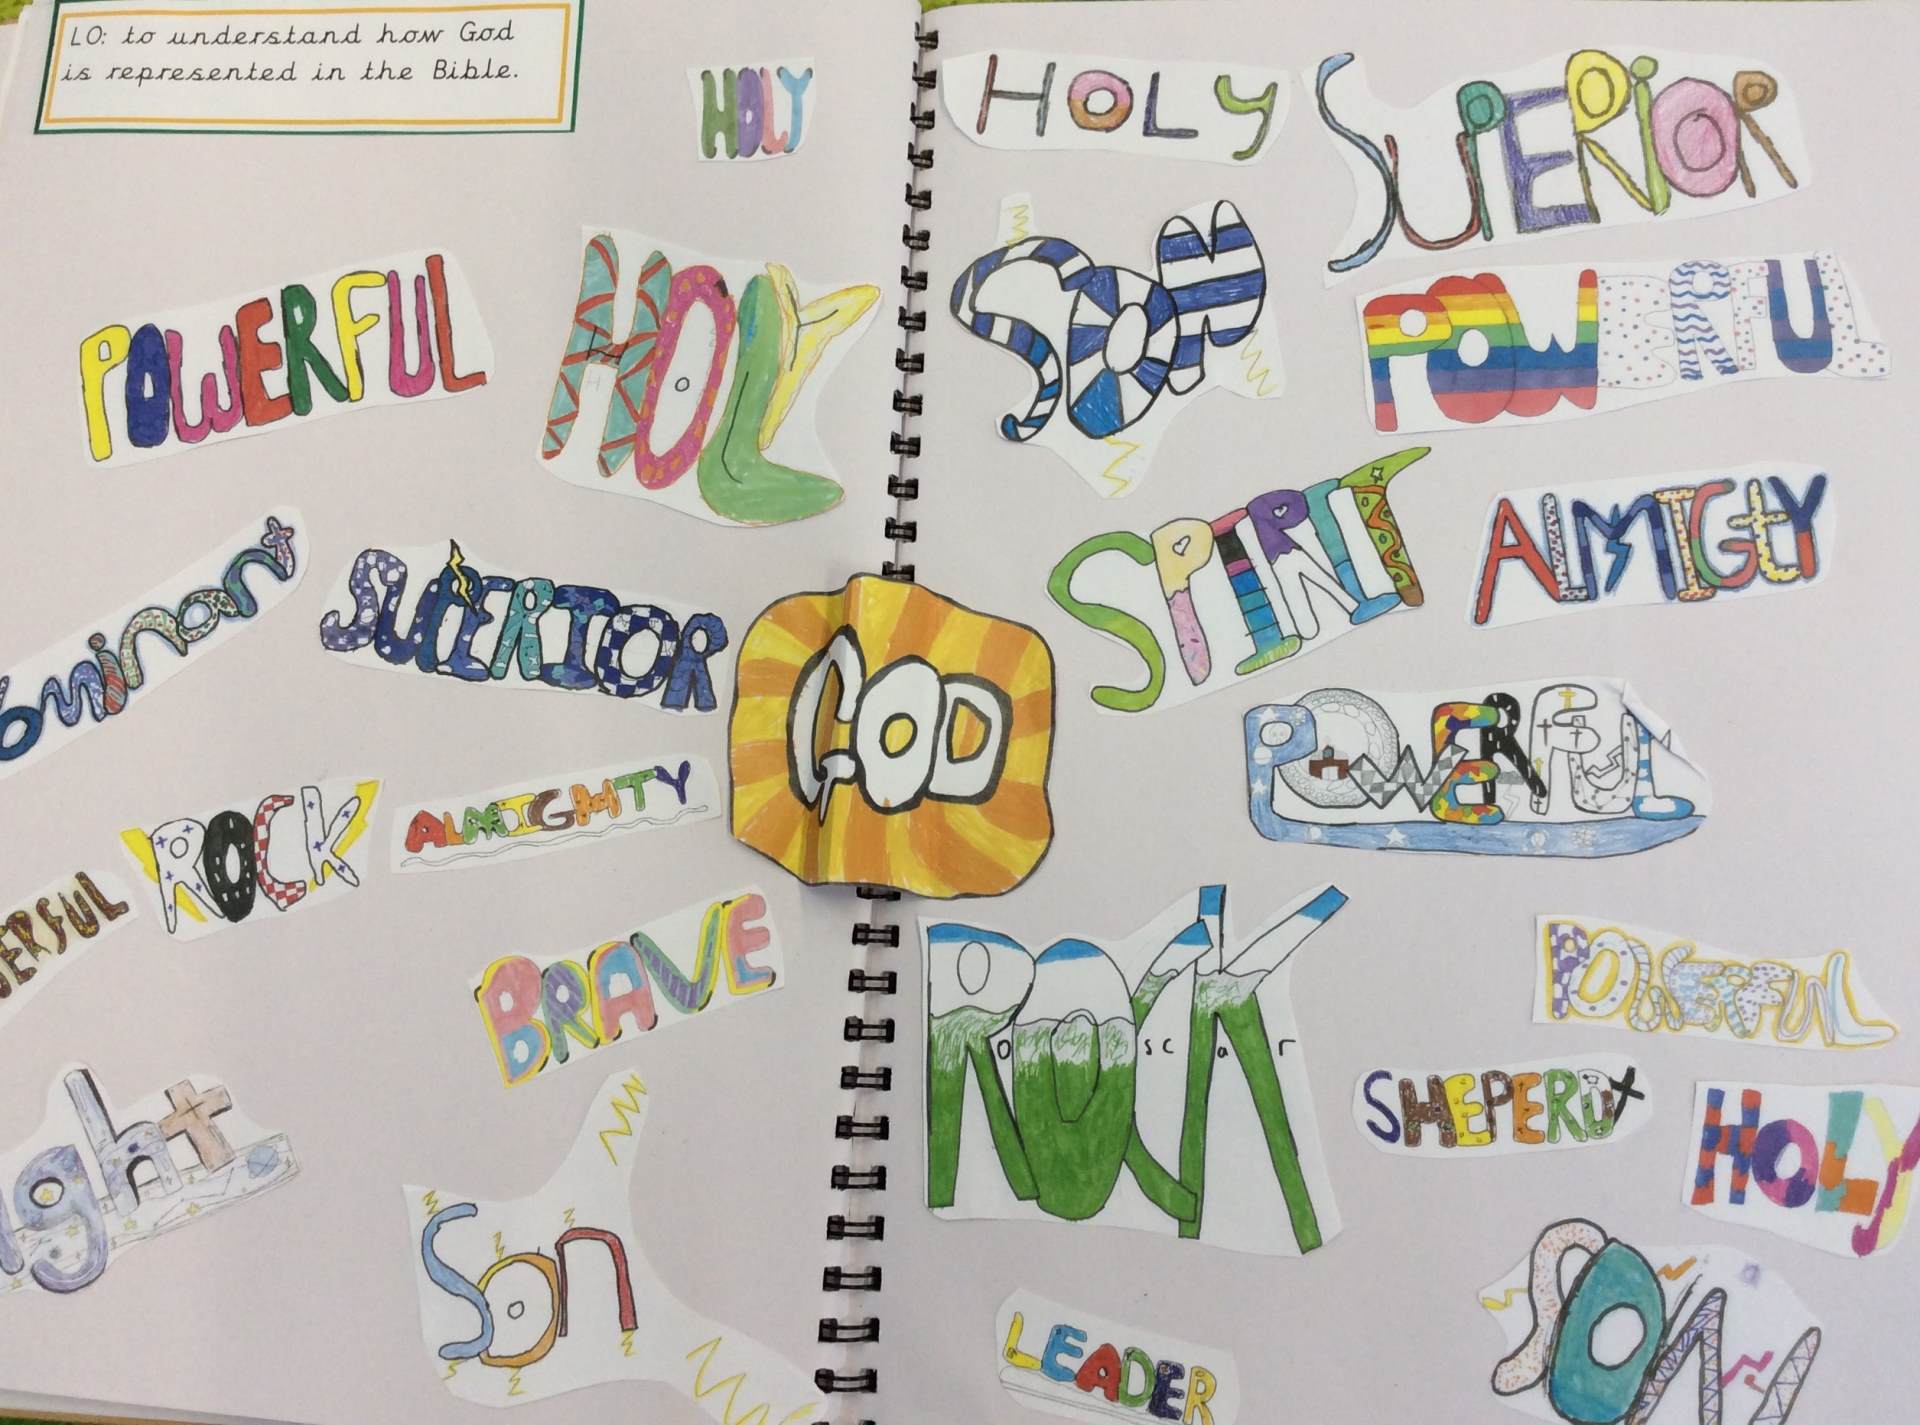 LO: to understand how God
is represented in the Bible.
HOLY
POWERFUL
HOLY
ominant
SUPERIOR
GOD
ROCK
ALMIGHTY
ERFUL
BRAVE
ight
Son
HOLY
SUPERIOR
SON
POWERFUL
SPIRIT
ALMIGtY
POWERFUL
ROCK
Oscar
POWERFUL
SHEPERD
HOLY
LEADER
SON